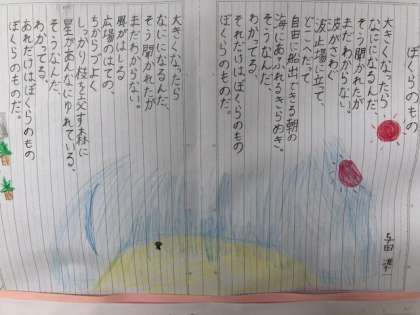 ぼくらのもの
与田 準
大きくなったら
なにになるんだ、
そう聞かれたが
まだわからない。
波がさわぐ
波止場に立って、
どこへだって
自由に船出できる朝の
海にあふれるきらめき。
そうなんだ、
わかってる、
それだけはぼくらのもの
ぼくらのものだ。
大きくなったら
なにになるんだ、
そう聞かれたが
まだわからない。
風がはしる
広場のはての、
ちからづよく
しっかり枝を交す森に
星があんなにゆれている、
そうなんだ、
わかってる、
あれだけはぼくらのもの
ぼくらのものだ。